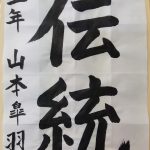 伝統
年 山本皐羽